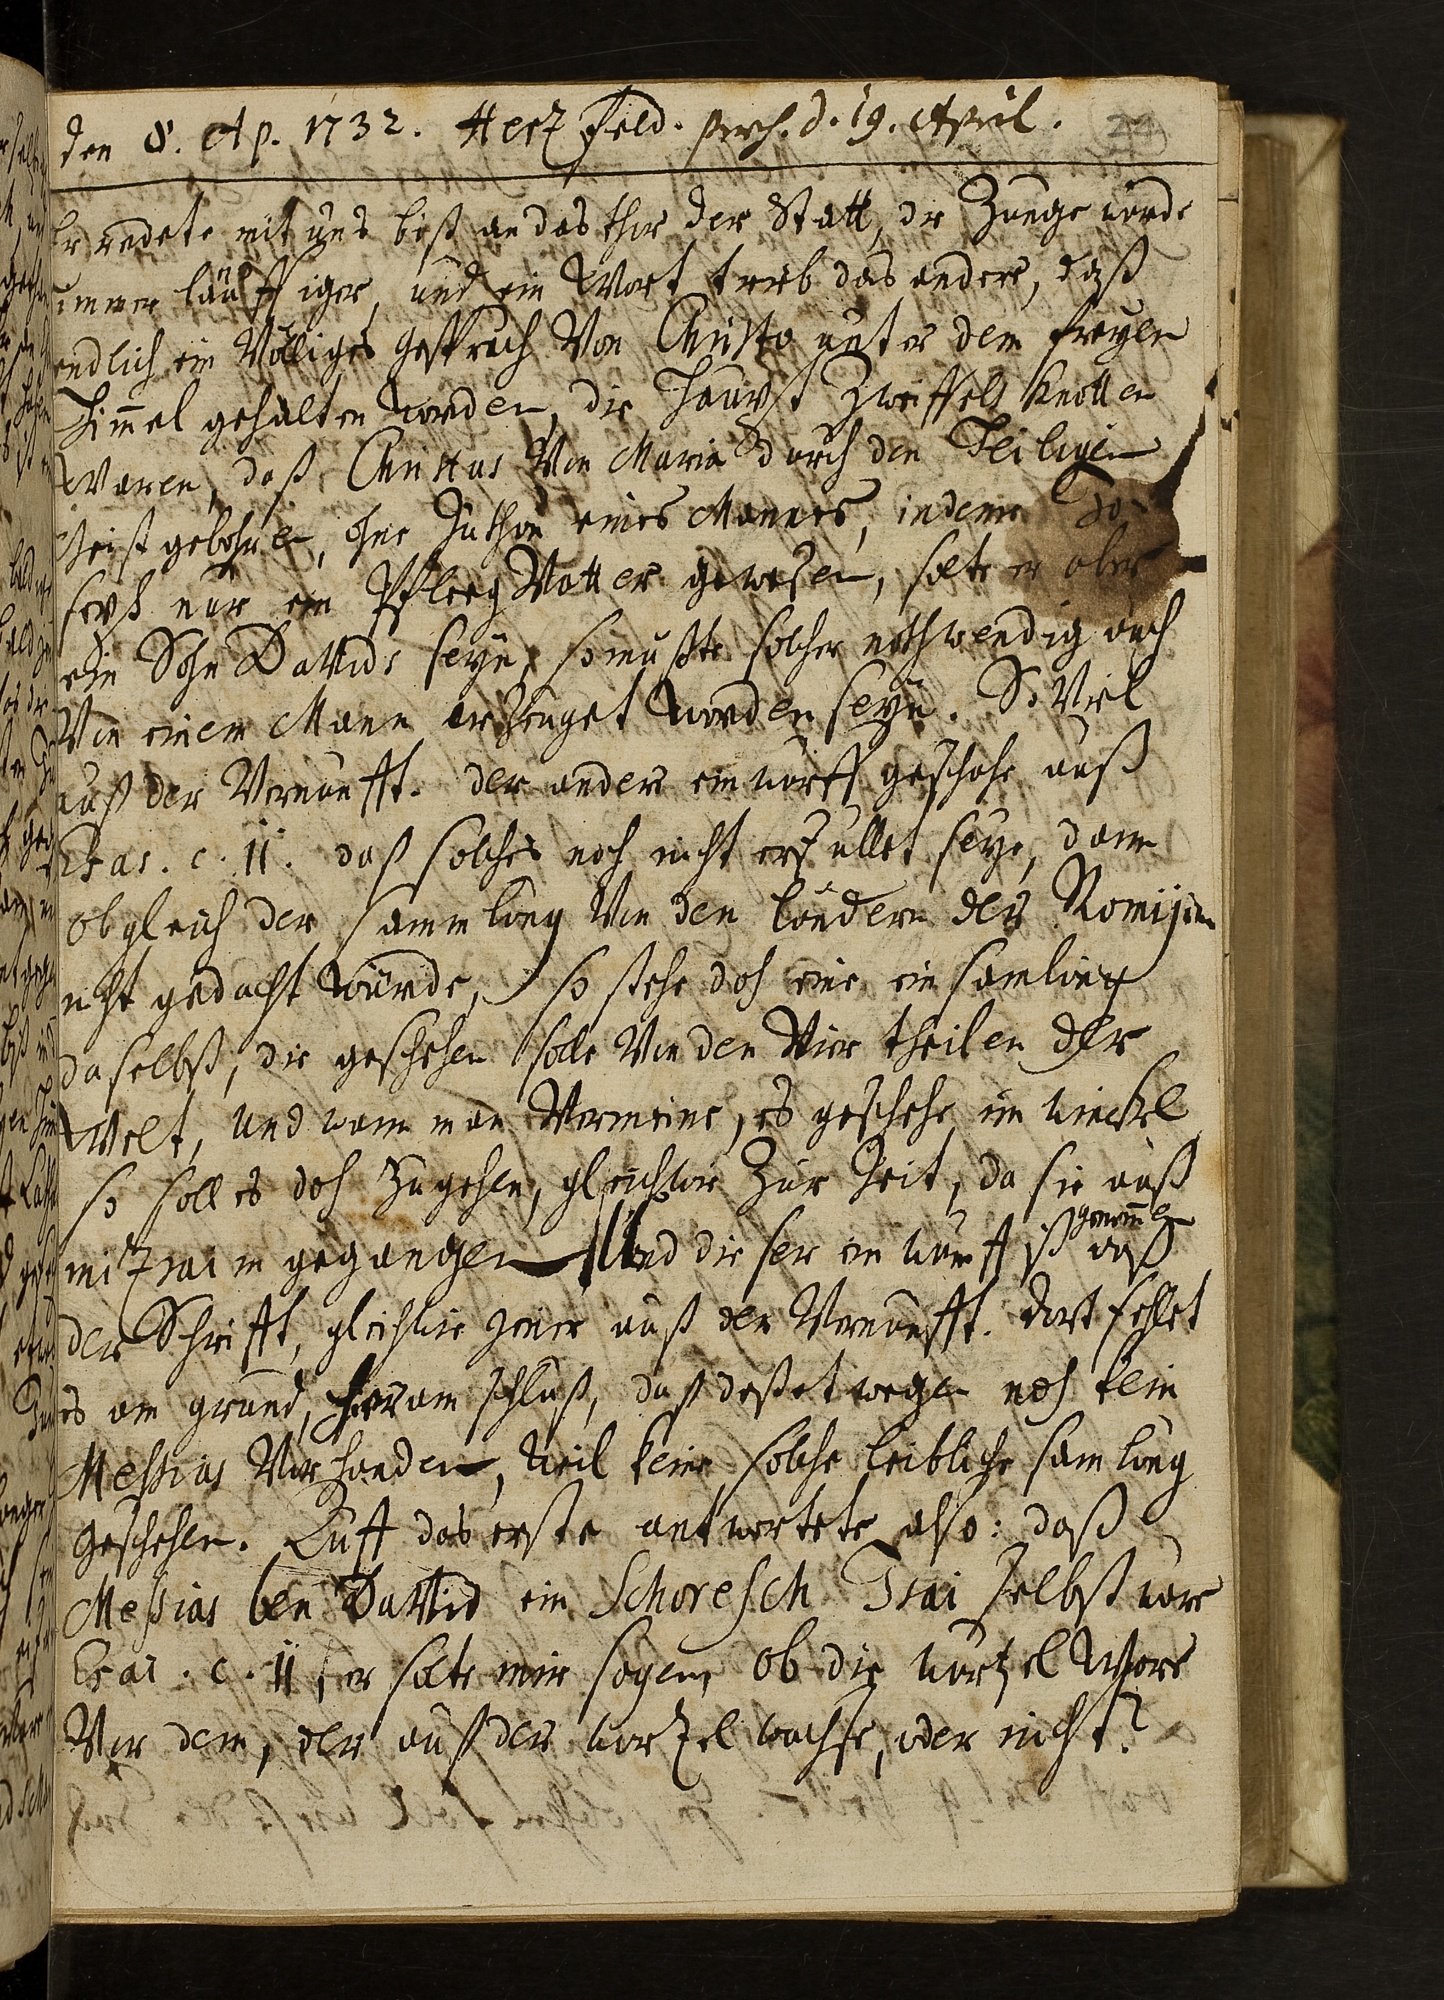 den 8. Ap. 1732. Herzfeld. perh. d. 19. April. 24
Er redete mit uns biß an das thor der Statt, die Zunge wurde
immer läuffiger, und ein Wort trieb das andere, daß
endlich ein Völliges Gespräch Von Christo unter dem freyen
Himmel gehalten worden, die Haupt Zweiffels Knotten
Waren, daß Christus Von Maria durch den Heiligen
Geist gebohren, ohne Zuthun eines Mannes, indeme Jo-
seph nur ein Pfleeg Vatter gewesen, solte er aber
ein Sohn Davids seyn, so mußte solcher nothwendig auch
Von einem Mann erzeuget worden seyn. So Viel
auß der Vernunfft. der andere einwurff geschahe auß
Esai. c. 11. daß solches noch nicht erfüllet seye, dann
ob gleich der sammlung Von den ländern der Romijim
nicht gedacht würde, so stehe doch eine einsamlung
daselbst, die geschehen solle Von den Vier theilen der
Welt, und wann man Vermeine, es geschehe im winckel
so soll es doch zugehen, gleichwie Zur Zeit, da sie auß
mizraim gegangen Und dieser einwurff ist genomen auß
der Schrifft, gleichwie jener auß der Vernunfft. dort fehlet
es am grund, hier am schluß, daß deßetwegen noch kein
Messias Vorhanden, weil keine solche leibliche samlung
geschehen. Auff das erste antwortete also: daß
Messias ben David ein Schoresch Isai selbst wäre
Esai. c. 11, er solte mir sagen, ob die wurtzel Wäre
Vor dem, der auß der wurzel wachse, oder nicht?